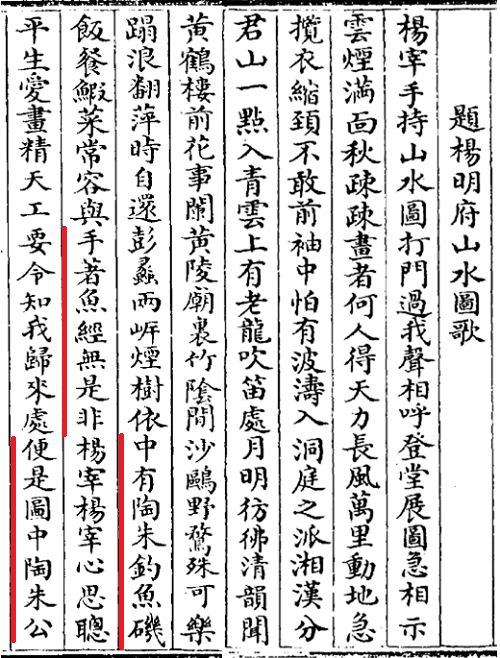 題楊明府山水圖歌
楊宰手持山水圖打門過我聲相呼登堂展圖急相示
雲煙滿靣秋疎疎畫者何人得天力長風萬里動地急
攬衣縮頚不敢前袖中怕有波濤入洞庭之派湘漢分
君山一點入青雲上有老龍吹笛處月明彷彿清韻聞
黃鶴樓前花事闌黃陵廟裏竹陰間沙鷗野鶩殊可樂
蹋浪翻萍時自還彭蠡兩岸煙樹依中有陶朱釣魚磯
飯餐鰕菜常容與手著魚經無是非楊宰楊宰心思聰
平生愛畫精天工要令知我歸來處便是圖中陶朱公